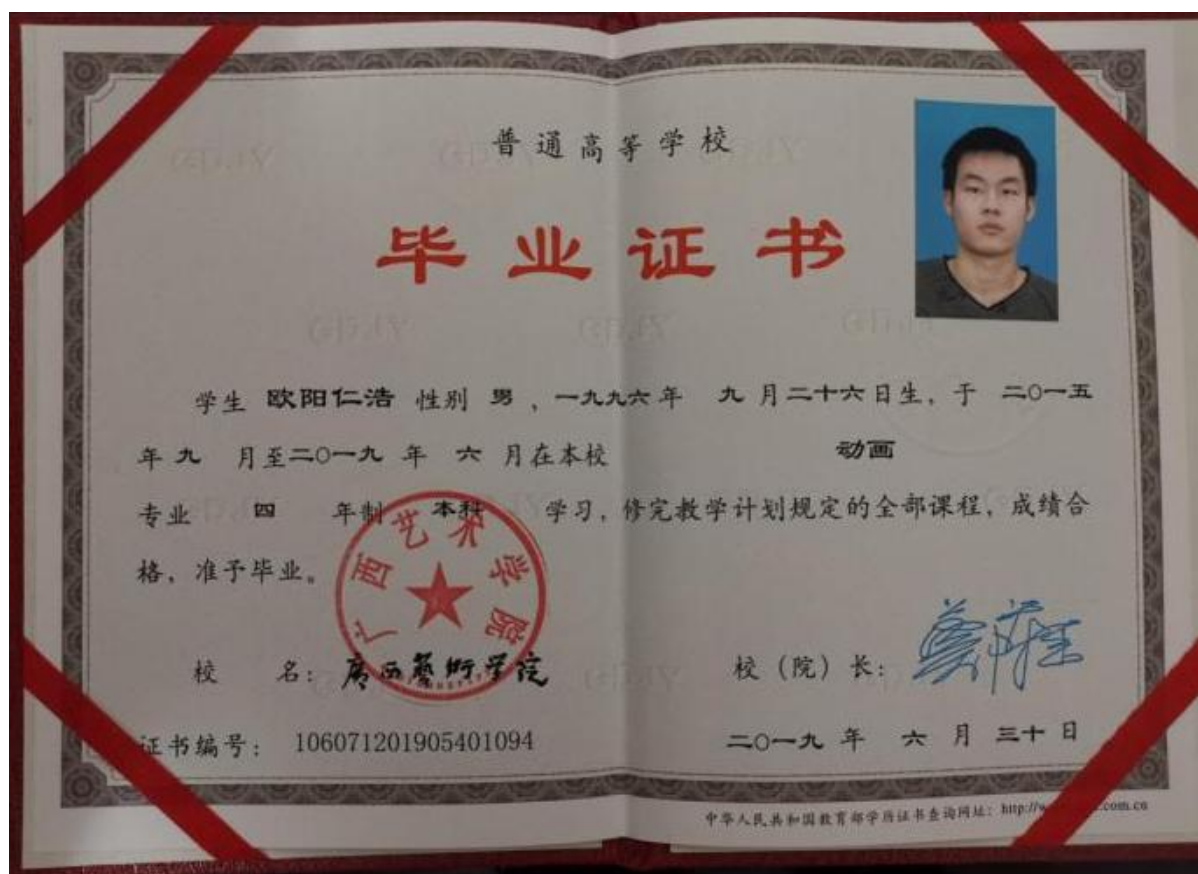 普通高等学校
毕业证书
学生 欧阳仁浩 性别 男 ，一九九六年 九 月二十六日生，于 二〇一五
年 九 月至二〇一九 年 六 月在本校 动画
专业 四 年制 本科 学习，修完教学计划规定的全部课程，成绩合
格，准予毕业。
广西艺术学院
校 名：廣西藝術学院
校（院）长：
证书编号： 106071201905401094
二〇一九 年 六 月 三十 日
中华人民共和国教育部学历证书查询网址：http://w .com.cn